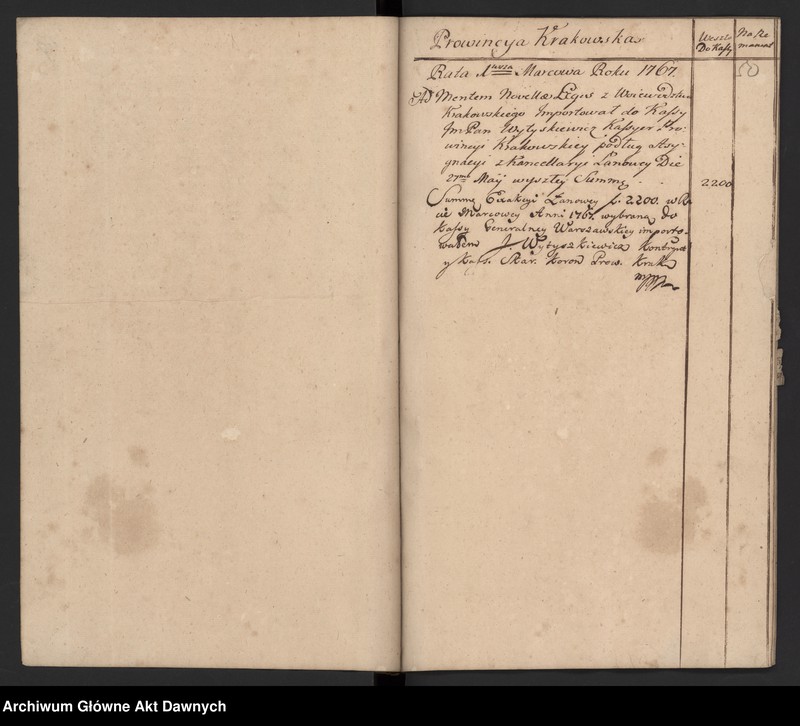 Prowincya Krakowska
Weszło
Do Kassy
Na Re
manent
Rata 1wsza Marcowa Roku 1767.
50
Ad Mentem Novellæ Legis z Woiewodztwa
Krakowskiego Importował do Kassy
ImPan Wytyskiewicz Kassyer Pro-
wincyi Krakowskiey podług Asy-
gnacyi z Kancellaryi Łanowey Die
27ma Maij wyszłey Summę
2200
Summę Exakcyi Łanowey f. 2200. w Ra
cie Marcowey Anni 1767. wybraną do
Kassy Generalney Warszawskiey importo-
wałem J. Wytyszkiewicz
y Kass. Skar. Koron Prow. Krak
mpp
Archiwum Główne Akt Dawnych